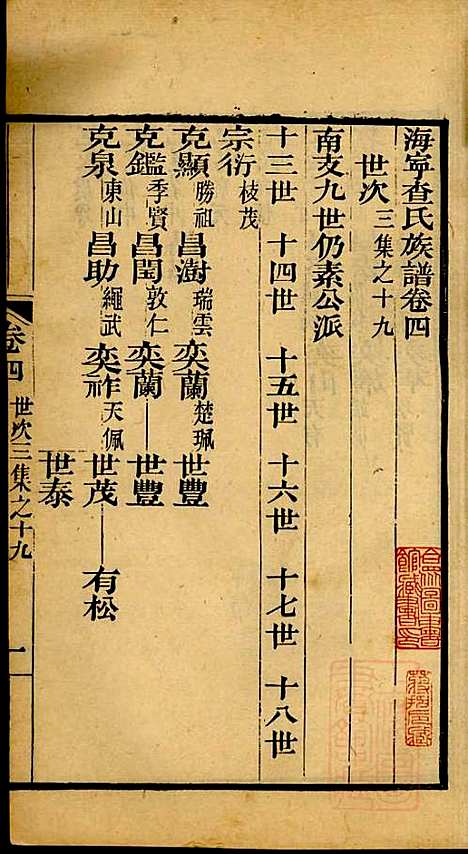 海寧查氏族譜卷四
世次三集之十九
南支九世仍素公派
十三世 十四世 十五世 十六世 十七世 十八世
宗衍 枝茂
克顯 勝祖 昌澍 瑞雲 奕蘭 楚珮 世豐
克鑑 季賢 昌閏 敦仁 奕蘭 世豐
克泉 東山 昌助 繩武 奕祚 天佩 世茂 有松
世泰
卷四 世次三集之十九 一